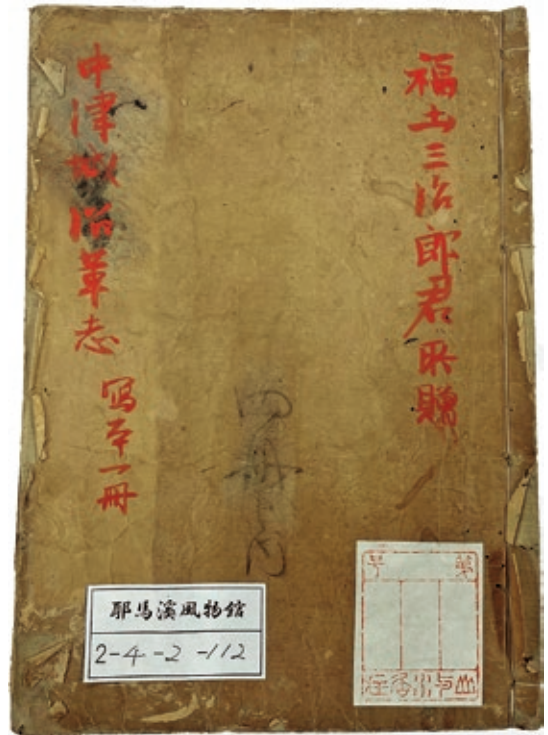 福土三治郎君所贈
四冊之内
中津城沿革志 寫本一冊
耶馬溪風物館
2-4-2-112
第 号